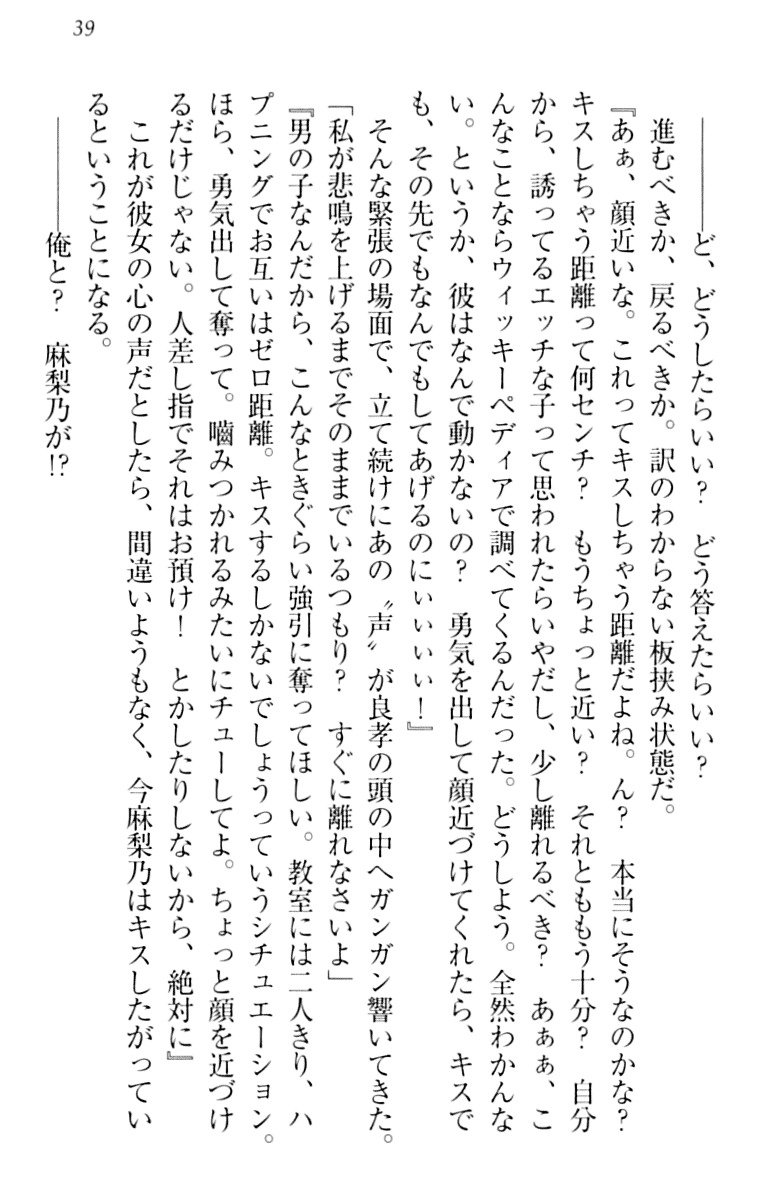 39
――――ど、どうしたらいい？　どう答えたらいい？
　進むべきか、戻るべきか。訳のわからない板挟み状態だ。
『あぁ、顔近いな。これってキスしちゃう距離だよね。ん？　本当にそうなのかな？
キスしちゃう距離って何センチ？　もうちょっと近い？　それとももう十分？　自分
から、誘ってるエッチな子って思われたらいやだし、少し離れるべき？　あぁぁ、こ
んなことならウィッキーペディアで調べてくるんだった。どうしよう。全然わかんな
い。というか、彼はなんで動かないの？　勇気を出して顔近づけてくれたら、キスで
も、その先でもなんでもしてあげるのにぃぃぃぃ！』
　そんな緊張の場面で、立て続けにあの〝声〟が良孝の頭の中へガンガン響いてきた。
「私が悲鳴を上げるまでそのままでいるつもり？　すぐに離れなさいよ」
『男の子なんだから、こんなときぐらい強引に奪ってほしい。教室には二人きり、ハ
プニングでお互いはゼロ距離。キスするしかないでしょうっていうシチュエーション。
ほら、勇気出して奪って。嚙みつかれるみたいにチューしてよ。ちょっと顔を近づけ
るだけじゃない。人差し指でそれはお預け！　とかしたりしないから、絶対に』
　これが彼女の心の声だとしたら、間違いようもなく、今麻梨乃はキスしたがってい
るということになる。
――――俺と？　麻梨乃が!?